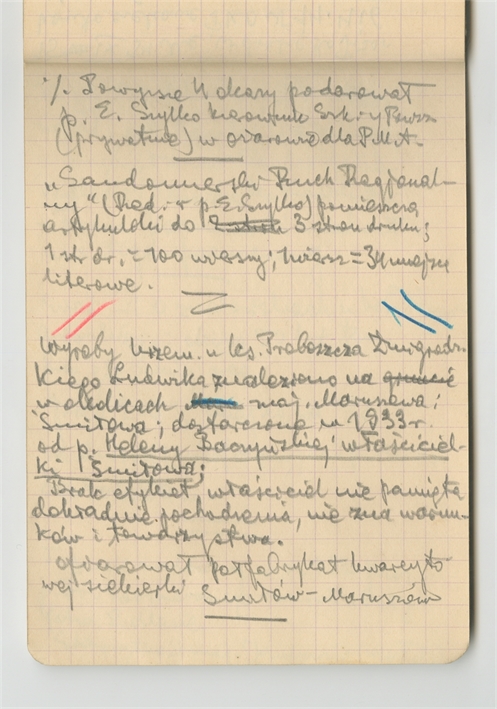 ·/. Powyższe 4 okazy podarował
p. E. Szylko kierownik Szk. y Powsz
(prywatnie) w Ożarowie dla P.M.A.
„Sandomierski Ruch Regjonal-
ny" (Red. p. E. Szylko) pomieszcza
artykuliki do 3 stron druku;
1 str. dr. = 100 wierszy; 1 wiersz = 34 miejsc
literowe.
Wyroby krzem. u ks. Proboszcza Żmigrodz-
kiego Ludwika znaleziono na gruncie
w okolicach maj. Maruszewa i
Śmiłowa; dostarczone w 1933 r.
od p. Heleny Baczyńskiej właściciel-
ki Śmiłowa;
Brak etykiet, właściciel nie pamięta
dokładnie pochodzenia, nie zna warun-
ków i towarzystwa.
ofiarował półfabrykat kwarcyto
wej siekierki Śmiłów – Maruszów